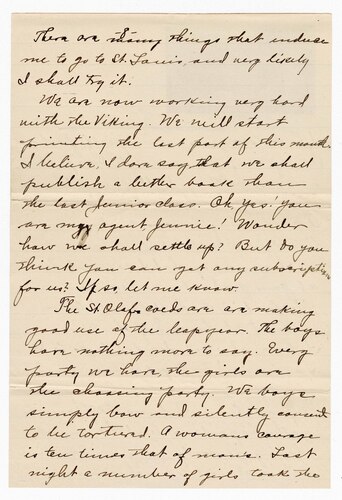 There are many things that induce
me to go to St. Louis, and very likely
I shall try it.
We are now working very hard
with the Viking. We will start
printing the last part of this month
I believe. I dare say that we shall
publish a better book than
the last Junior class. Oh yes! you
are my agent, Jennie! Wonder
how we shall settle up? But do you
think you can get any subscriptions
for us? If so, let me know.
The St. Olaf coeds are are making
good use of the leapyear. The boys
have nothing more to say. Every
party we have, the girls are
the choosing party. We boys
simply bow and silently consent
to be tortured. A womans courage
is ten times that of man's. Last
night a number of girls took the